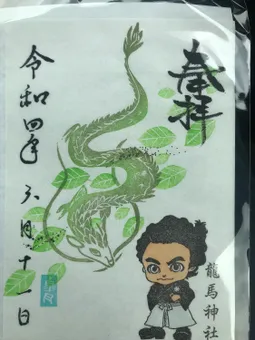 奉拝
令和四年 六月十一日
龍馬神社